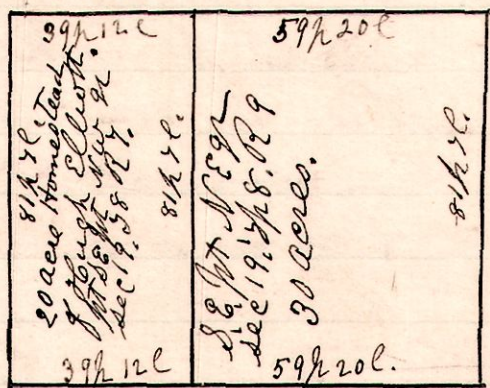 39p 12l
81p 7l.
20 acre Homestead
of Hugh Elliott.
pt SE pt N W qr
sec 19. T 8 R 7.
81p 7l.
39p 12l
59p 20l
S.E. pt N E qr
sec 19. Tp 8. R 9
30 acres.
81p 7l.
59p 20l.